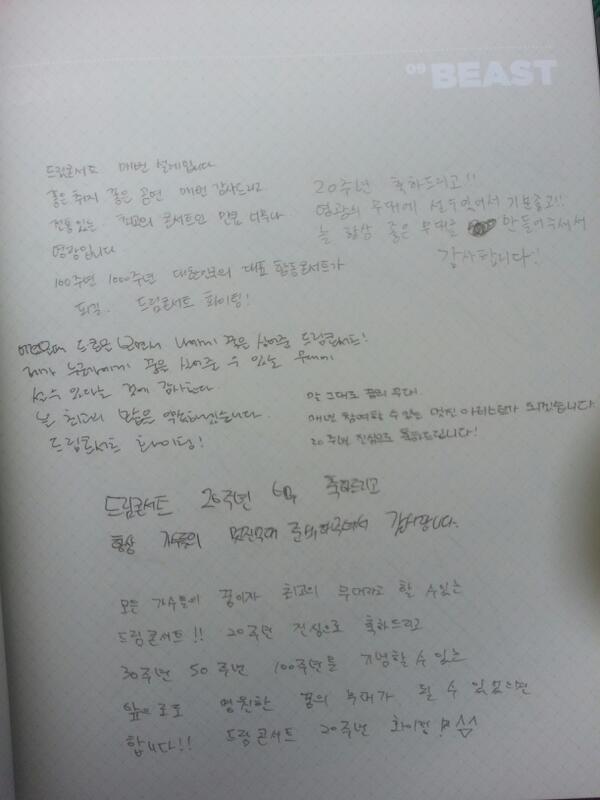 09 BEAST
드림콘서트 매번 설레입니다
좋은 취지 좋은 공연 매번 감사드리고
전통있는 최고의 콘서트인 만큼 너무나
영광입니다
100주년 1000주년 대한민국의 대표 합동콘서트가
되길. 드림콘서트 화이팅!
20주년 축하드리고!!
영광의 무대에 설수있어서 기분좋고!!
늘 항상 좋은 무대를 만들어주셔서
감사합니다!
드림콘 보면서 나에게 꿈을 심어준 드림콘서트!
제가 누군가에게 꿈을 심어줄 수 있는 무대에
설수 있다는 것에 감사한다.
날 최고의 약속하겠습니다.
드림콘서트 화이팅!
말 그대로 꿈의 무대.
매년 참여할 수 있는 멋진 아티스트가 되겠습니다
20주년 진심으로 축하드립니다!
드림콘서트 20주년 축하드리고
항상 가수들의 멋진무대 준비해주셔서 감사합니다.
모든 가수들이 꿈이자 최고의 무대라고 할 수있는
드림콘서트!! 20주년 진심으로 축하드리고
30주년 50주년 100주년을 기념할 수 있는
앞으로도 영원한 꿈의 무대가 될 수 있었으면
합니다!! 드림콘서트 20주년 화이팅!! ^^